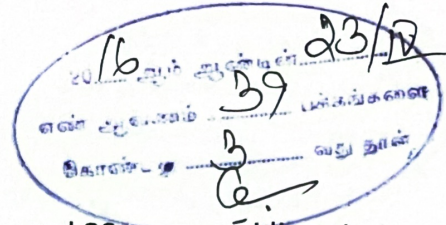 2016 ஆம் ஆண்டின் 23/IV
எண் ஆவணம் 39 பக்கங்களை
கொண்டது 3 வது தாள்